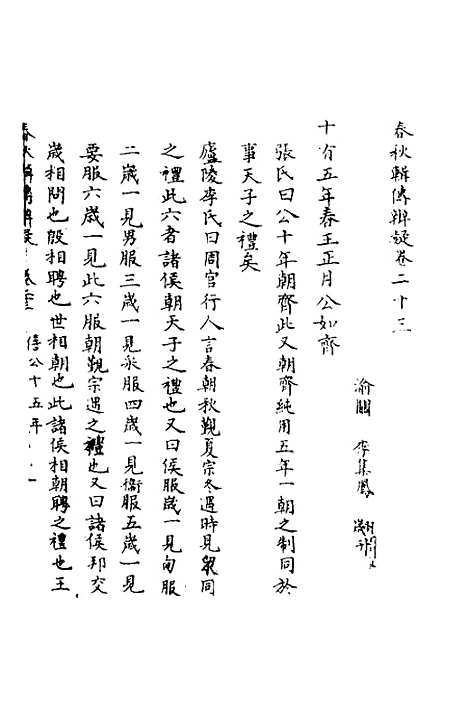 春秋輯傳辨疑卷二十三
渝關 李集鳳
十有五年春王正月公如齊
張氏曰公十年朝齊此又朝齊純用五年一朝之制同於
事天子之禮矣
廬陵李氏曰周官行人言春朝秋覲夏宗冬遇時見衆同
之禮此六者諸侯朝天子之禮也又曰侯服歲一見甸服
二歲一見男服三歲一見采服四歲一見衛服五歲一見
要服六歲一見此六服朝覲宗遇之禮也又曰諸侯邦交
歲相問也殷相聘也世相朝也此諸侯相朝聘之禮也王
春秋輯傳辨疑 卷二十三 僖公十五年 一